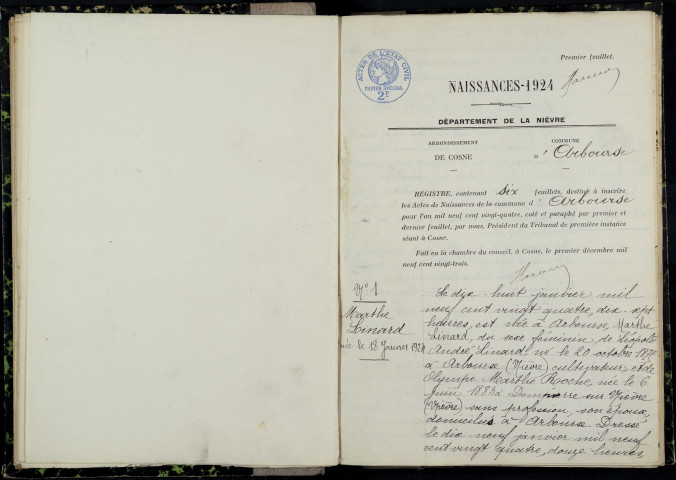 ACTES DE L'ÉTAT CIVIL
PAPIER SPÉCIAL
2E
Premier feuillet.
NAISSANCES-1924
DÉPARTEMENT DE LA NIÈVRE
ARRONDISSEMENT
DE COSNE
COMMUNE
D' Arbourse
REGISTRE, contenant six feuillets, destiné à inscrire
les Actes de Naissances de la commune d' Arbourse
pour l'an mil neuf cent vingt-quatre, coté et paraphé par premier et
dernier feuillet, par nous, Président du Tribunal de première instance
séant à Cosne.
Fait en la chambre du conseil, à Cosne, le premier décembre mil
neuf cent vingt-trois.
N° 1
Marthe
Linard
née le 18 Janvier 1924
Le dix-huit janvier mil
neuf cent vingt quatre, dix-sept
heures, est née à Arbourse, Marthe
Linard, du sexe féminin, de Léopold
André Linard, né le 20 octobre
à Arbourse (Nièvre) cultivateur, et de
Olympe Marthe Roche, née le 6
Juin 1883 à Dompierre sur Nièvre
(Nièvre) sans profession, son épouse,
domiciliés à Arbourse. Dressé
le dix neuf janvier mil neuf
cent vingt quatre, douze heures,